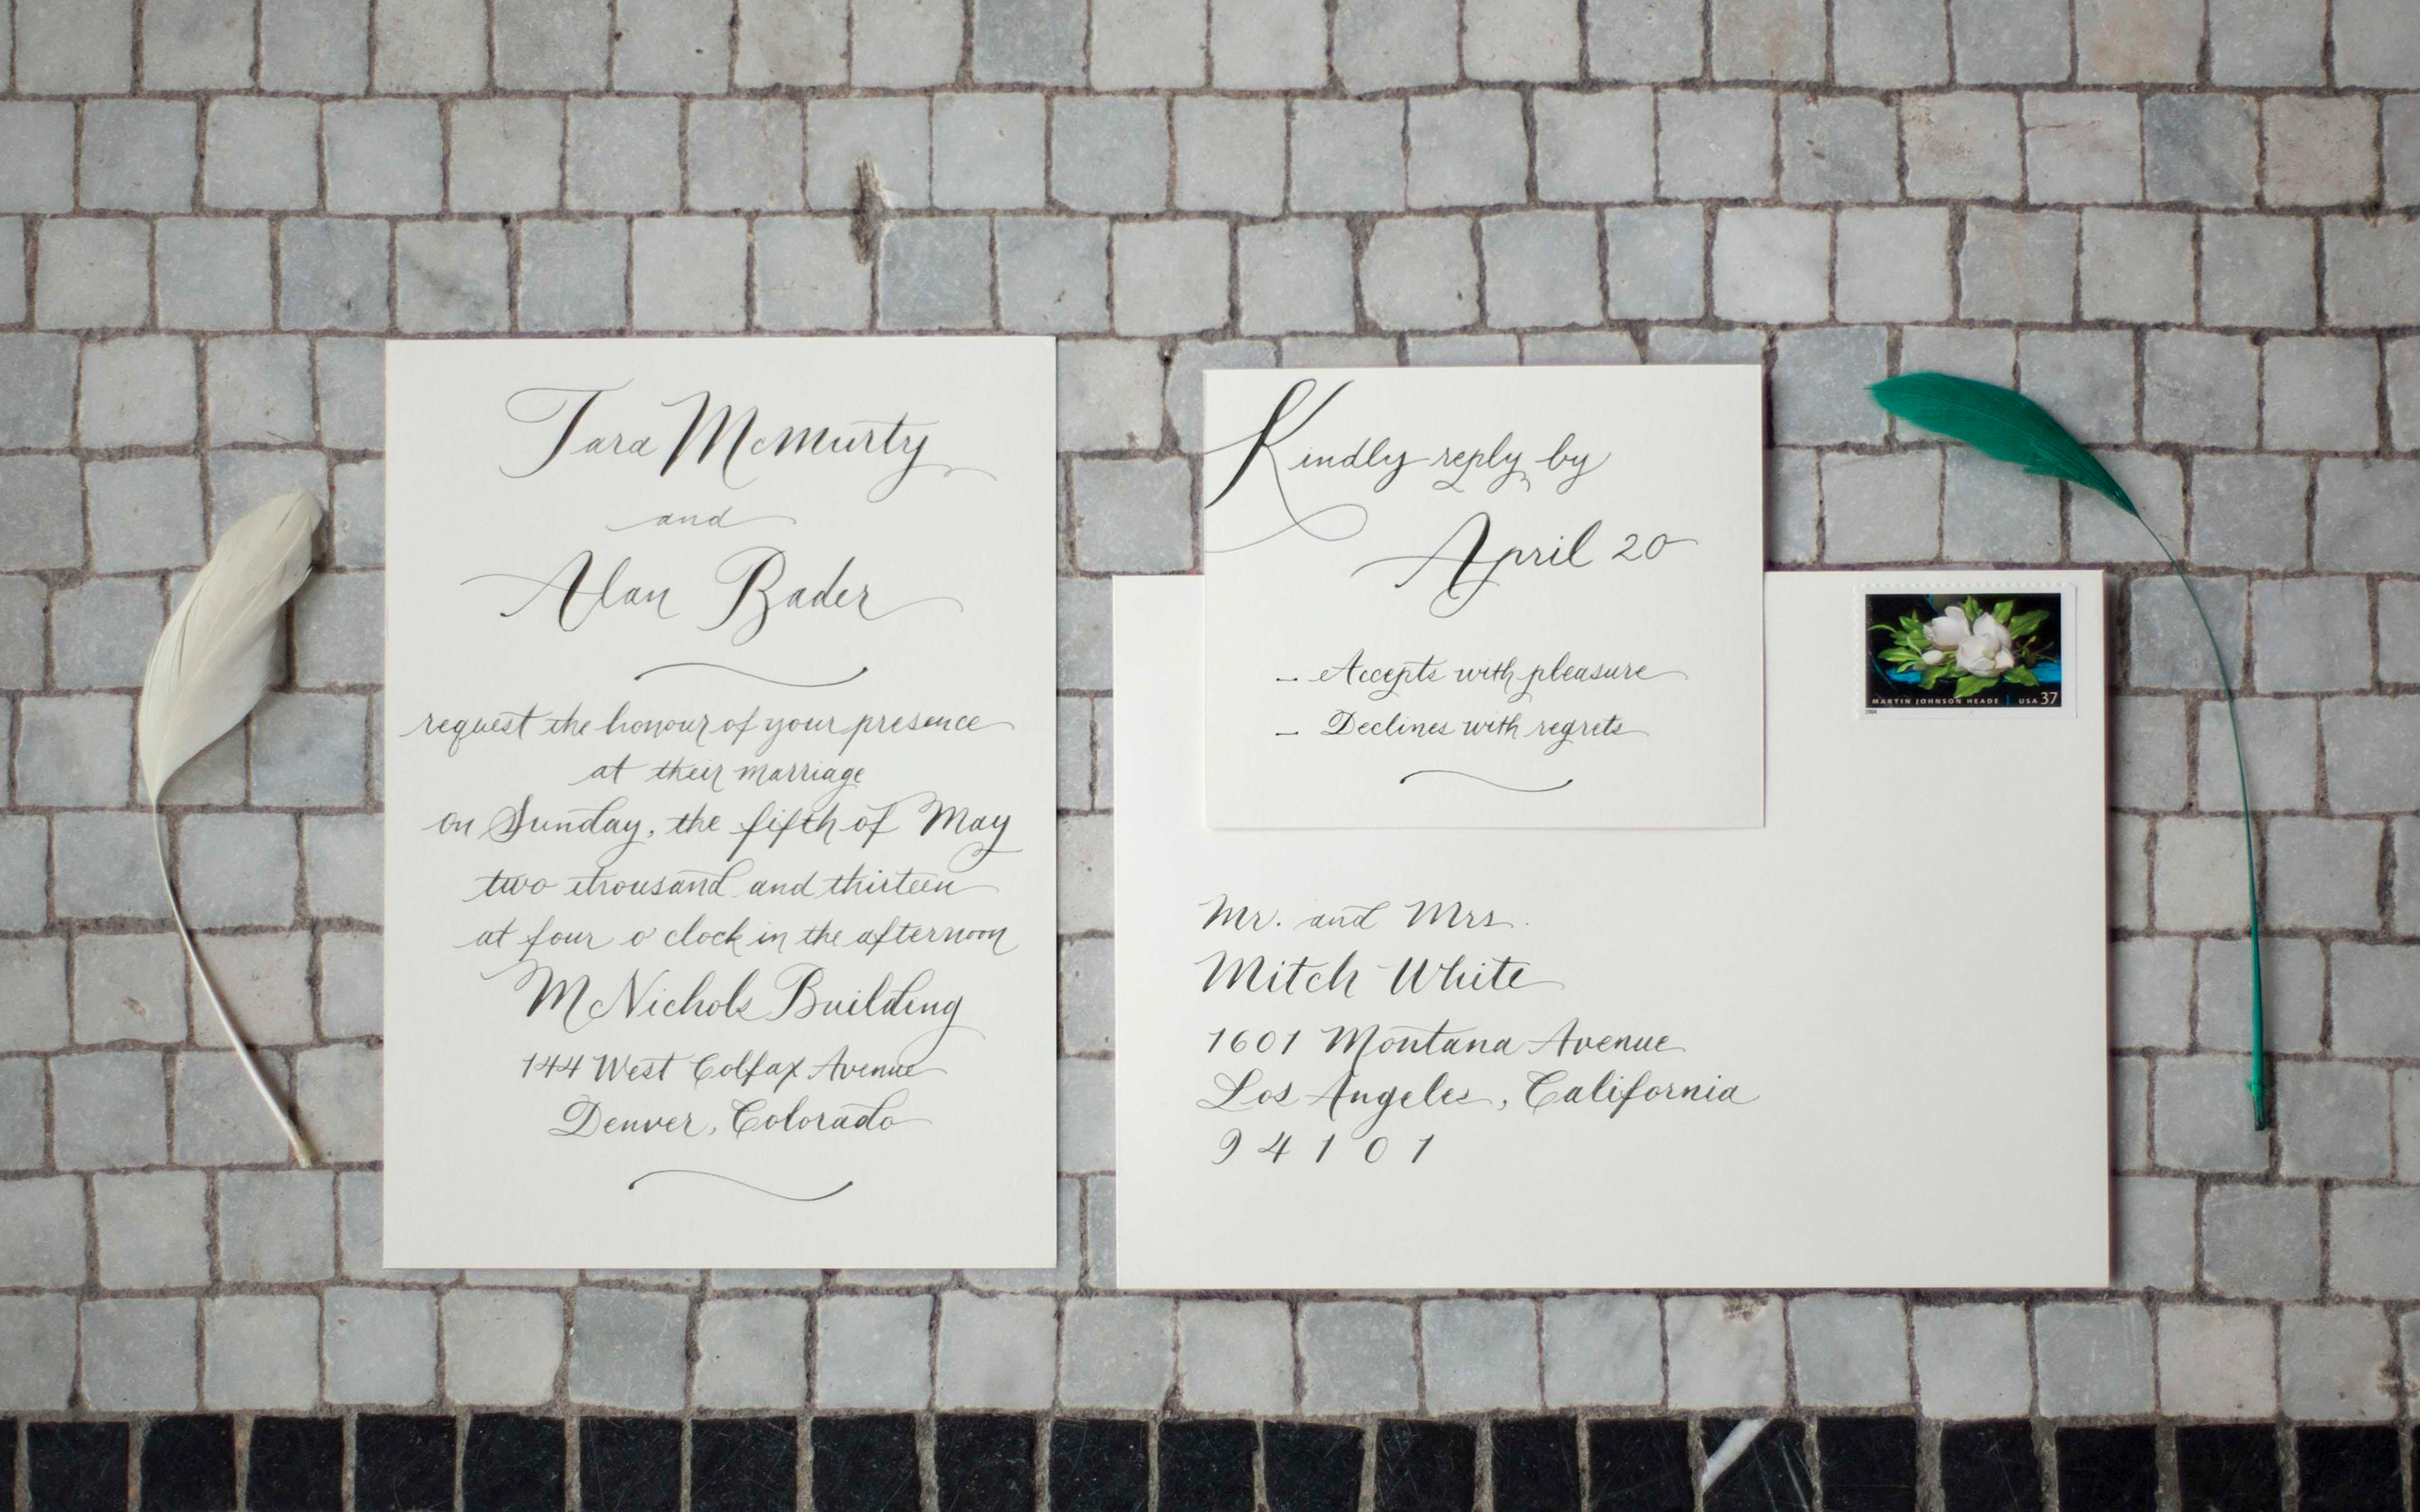 Tara McMurty
and
Alan Bader
request the honour of your presence
at their marriage
on Sunday, the fifth of May
two thousand and thirteen
at four o'clock in the afternoon
McNichols Building
144 West Colfax Avenue
Denver, Colorado
Kindly reply by
April 20
– Accepts with pleasure
– Declines with regrets
MARTIN JOHNSON HEADE | USA 37
2004
Mr. and Mrs.
Mitch White
1601 Montana Avenue
Los Angeles, California
94101